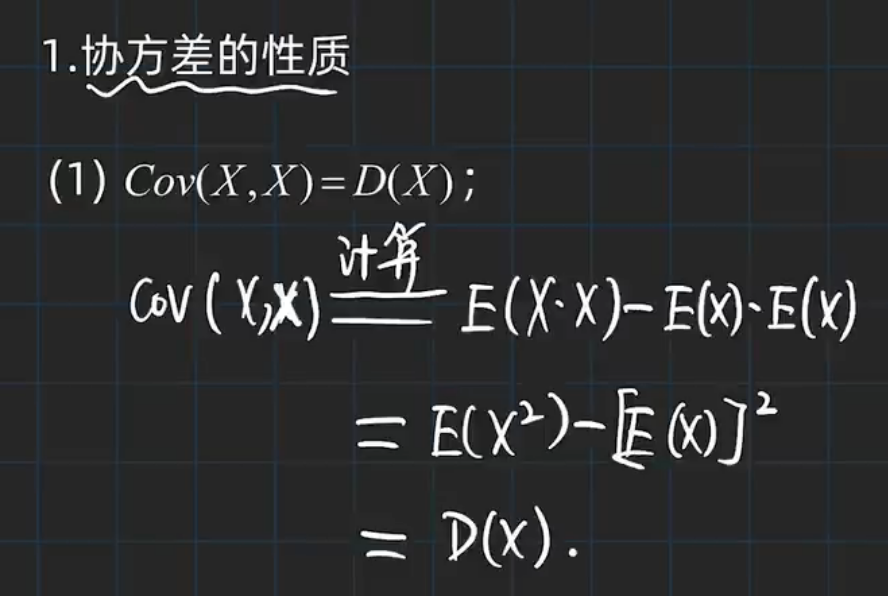 1.协方差的性质
(1) Cov(X,X)=D(X);
Cov(X,X) 计算= E(X·X)-E(X)·E(X)
= E(X²)-[E(X)]²
= D(X).